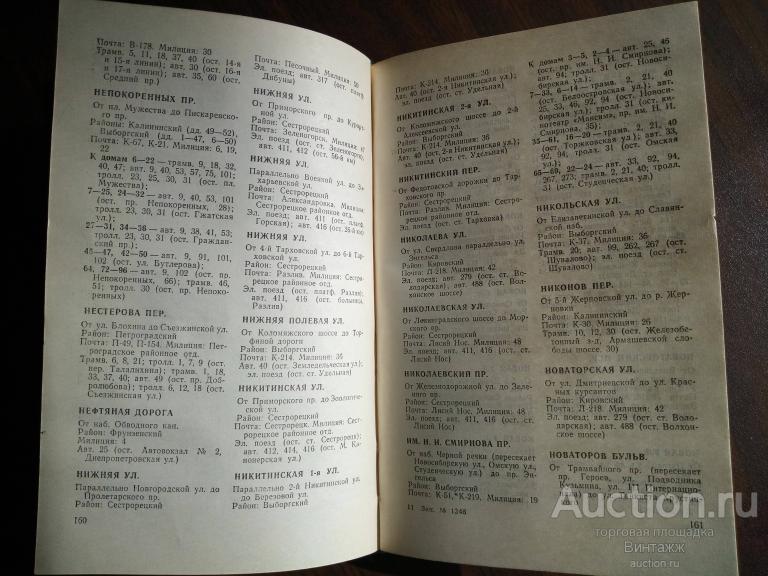 Почта: В-178. Милиция: 30
Трамв. 5, 11, 18, 37, 40 (ост. 14-я
и 15-я линии); авт. 30 (ост. 16-я
и 17-я линии); авт. 35, 60 (ост.
Средний пр.)
НЕПОКОРЕННЫХ ПР.
От пл. Мужества до Пискаревско-
го пр.
Районы: Калининский (дд. 49—62),
Выборгский (дд. 1—47, 6—50)
Почта: К-67, К-21. Милиция: 6, 19,
22
К домам 6—22 — трамв. 9, 18, 32,
40, 47; авт. 9, 40, 53, 57, 75, 101;
тролл. 23, 25, 30, 31 (ост. пл.
Мужества);
7—25, 24—32 — авт. 9, 40, 53, 101
(ост. пр. Непокоренных, 28);
тролл. 23, 30, 31 (ост. Гжатская
ул.);
27—31, 34—36 — авт. 9, 38, 41, 53;
тролл. 23, 30, 31 (ост. Граждан-
ский пр.);
45—47, 42—50 — авт. 9, 91, 101,
102 (ост. ул. Бутлерова);
64, 72—96 — авт. 9, 102 (ост. пр.
Непокоренных, 66); трамв. 46,
51; тролл. 30 (ост. пр. Непоко-
ренных)
НЕСТЕРОВА ПЕР.
От ул. Блохина до Съезжинской ул.
Район: Петроградский
Почта: П-49, П-154. Милиция: Пет-
роградское районное отд.
Трамв. 6, 8, 21; тролл. 1, 7, 9 (ост.
пер. Талалихина); трамв. 1, 18,
33, 37, 40; авт. 49 (ост. пр. Доб-
ролюбова); тролл. 6, 12, 18 (ост.
Съезжинская ул.)
НЕФТЯНАЯ ДОРОГА
От наб. Обводного кан.
Район: Фрунзенский
Милиция: 4
Авт. 25 (ост. Автовокзал № 2,
Днепропетровская ул.)
НИЖНЯЯ УЛ.
Параллельно Новгородской ул. до
Пролетарского пр.
Район: Сестрорецкий
160
Почта: Песочный. Милиция: 50
Эл. поезд; авт. 317 (ост. платф.
Дибуны)
НИЖНЯЯ УЛ.
От Приморского пр. до Курорт-
ной ул.
Район: Сестрорецкий
Почта: Зеленогорск. Милиция:
Эл. поезд (ост. ст. Зеленогорск);
авт. 411, 412 (ост. 56-й км)
НИЖНЯЯ УЛ.
Параллельно Военной ул. до За-
харьевской ул.
Район: Сестрорецкий
Почта: Александровка. Милиция:
Сестрорецкое районное отд.
Эл. поезд; авт. 411 (ост.
Горская); авт. 416 (ост. 26-й км)
НИЖНЯЯ УЛ.
От 4-й Тарховской ул. до 6-й Тар-
ховской ул.
Район: Сестрорецкий
Почта: Разлив. Милиция: Сестро-
рецкое районное отд.
Эл. поезд (ост. платф. Разлив);
авт. 411, 416 (ост. больница,
Разлив)
НИЖНЯЯ ПОЛЕВАЯ УЛ.
От Коломяжского шоссе до Тор-
фяной дороги
Район: Выборгский
Почта: К-214. Милиция: 36
Авт. 40 (ост. Земледельческая ул.);
эл. поезд (ост. ст. Удельная)
НИКИТИНСКАЯ УЛ.
От Приморского пр. до Зоологиче-
ской ул.
Район: Сестрорецкий
Почта: Сестрорецк. Милиция: Сест-
рорецкое районное отд.
Эл. поезд (ост. ст. Сестрорецк);
авт. 412, 414, 416 (ост. М. Ка-
нонерская ул.)
НИКИТИНСКАЯ 1-я УЛ.
Параллельно 2-й Никитинской ул.
до Березовой ул.
Район: Выборгский
Почта: К-214. Милиция: 36
Авт. 40 (ост. 2-я Никитинская ул.);
эл. поезд (ост. ст. Удельная)
НИКИТИНСКАЯ 2-я УЛ.
От Коломяжского шоссе до 2-й
Алексеевской ул.
Район: Выборгский
Почта: К-214. Милиция: 36
Авт. 40 (ост. 2-я Никитинская ул.);
эл. поезд (ост. ст. Удельная)
НИКИТИНСКИЙ ПЕР.
От Федотовской дорожки до Тар-
ховского пр.
Район: Сестрорецкий
Почта: Разлив. Милиция: Сестро-
рецкое районное отд.
Эл. поезд (ост. ст. Тарховка)
НИКОЛАЕВА УЛ.
От ул. Свирлова параллельно ул.
Энгельса
Район: Кировский
Почта: Л-218. Милиция: 42
Эл. поезд; авт. 279 (ост. ст.
Володарская); авт. 488 (ост. Вол-
хонское шоссе)
НИКОЛАЕВСКАЯ УЛ.
От Ленинградского шоссе до Мор-
ского пр.
Район: Сестрорецкий
Почта: Лисий Нос. Милиция: 48
Эл. поезд; авт. 411, 416 (ост. ст.
Лисий Нос)
НИКОЛАЕВСКИЙ ПР.
От Железнодорожной ул. до Зеле-
ного пр.
Район: Сестрорецкий
Почта: Лисий Нос. Милиция: 48
Эл. поезд; авт. 411, 416 (ост. ст.
Лисий Нос)
ИМ. Н. И. СМИРНОВА ПР.
От наб. Черной речки (пересекает
Новосибирскую ул., Омскую ул.,
Студенческую ул.) до пр. Эн-
гельса
Район: Выборгский
Почта: К-51, К-219. Милиция: 19
11 Зак. № 1246
К домам 3—5, 2—4 — авт. 25, 46
(ост. пр. им. Н. И. Смирнова);
авт. 94, тролл. 31 (ост. Новоси-
бирская ул.);
7—33, 6—14 — трамв. 2, 21, 40
(ост. Белоостровская ул.); авт.
25, 33, 46, 92, 94 (ост. Новоси-
бирская ул.); тролл. 31 (ост. ки-
нотеатр «Максим», пр. им. Н. И.
Смирнова, 35);
35—61, 16—20 — трамв. 2, 21, 40
(ост. Торжковская ул.); авт. 33,
92, 94; тролл. 31 (ост. Омская
ул.);
65—69, 22—24 — авт. 33, 92, 94,
267, 273; трамв. 2, 21, 40; тролл.
31 (ост. Студенческая ул.)
НИКОЛЬСКАЯ УЛ.
От Елизаветинской ул. до Славян-
ской наб.
Район: Выборгский
Почта: К-37. Милиция: 36
Трамв. 20; авт. 99, 262, 267 (ост.
Шувалово); эл. поезд (ост. ст.
Шувалово)
НИКОНОВ ПЕР.
От 5-й Жерновской ул. до р. Жер-
новки
Район: Калининский
Почта: К-30. Милиция: 26
Трамв. 10, 12, 30 (ост. Железобетон-
ный з-д, Армашевской
слободы 30)
НОВАТОРСКАЯ УЛ.
От ул. Дмитриевской до ул. Крас-
ных курсантов
Район: Кировский
Почта: Л-218. Милиция: 42
Эл. поезд; авт. 279 (ост. ст. Воло-
дарская); авт. 488 (ост. Волхон-
ское шоссе)
НОВАТОРОВ БУЛЬВ.
От Трамвайного пр. (пересекает
пр. Героев, ул. Подводника
Кузьмина, ул.
161
Auction.ru
торговая площадка
Винтажж
auction.ru